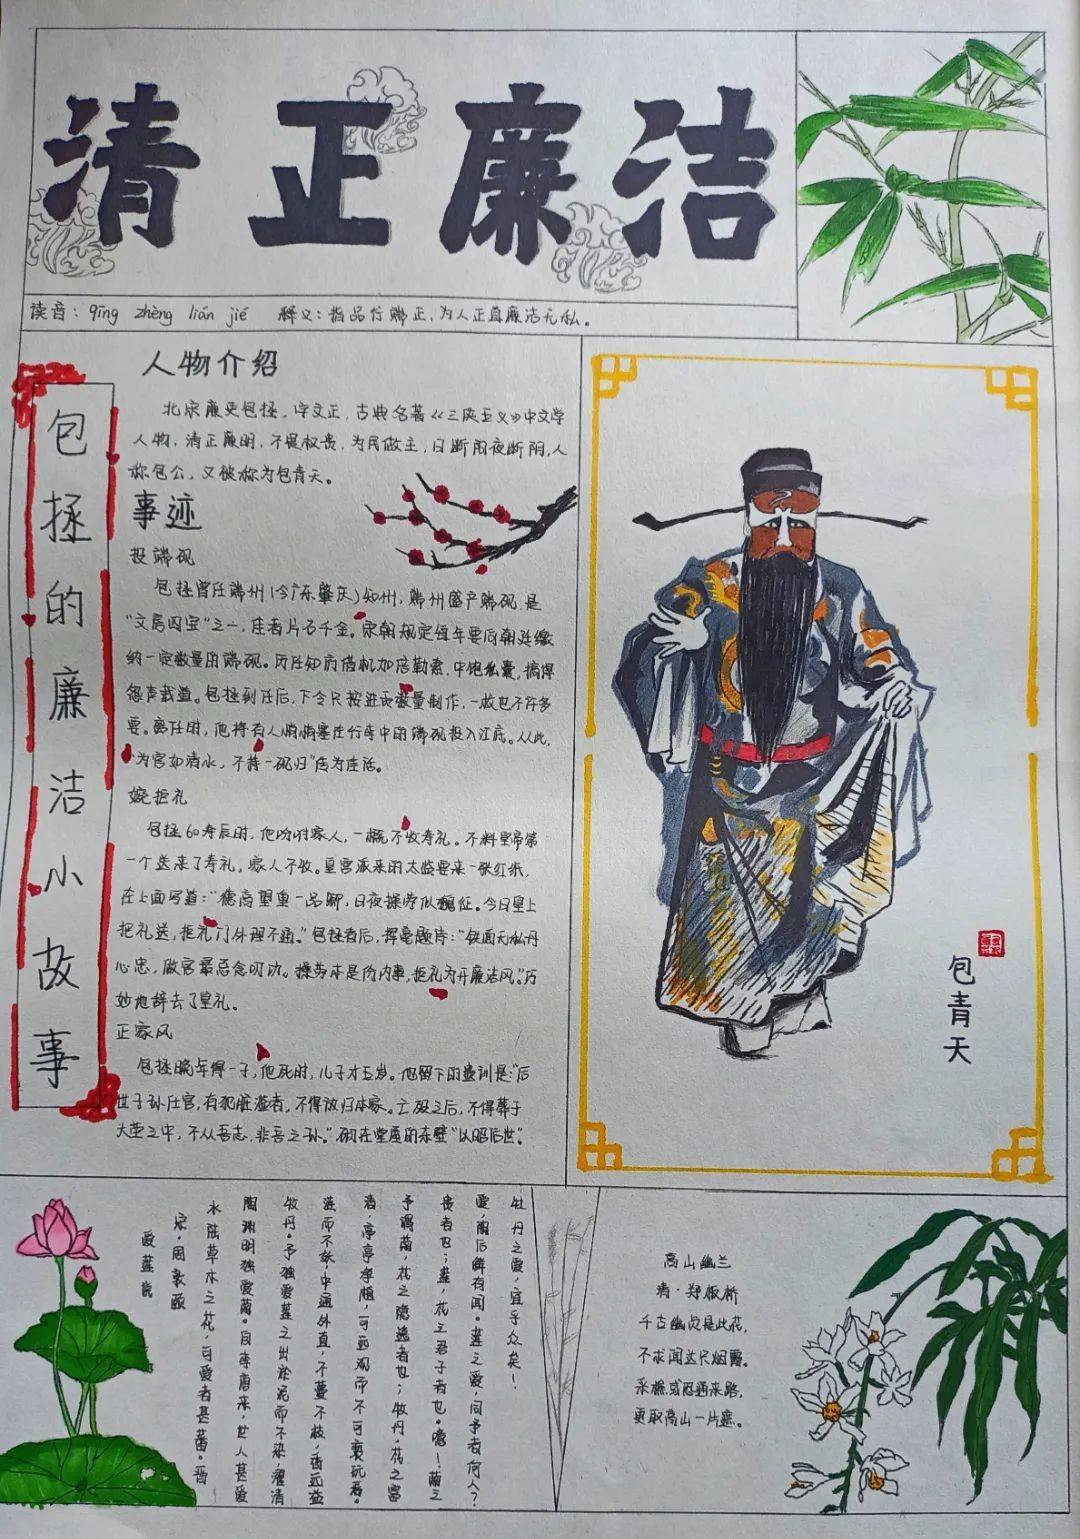 清正廉洁
读音：qīng zhèng lián jié 释义：指品行端正，为人正直廉洁无私。
包拯的廉洁小故事
人物介绍
北宋廉吏包拯，字文正，古典名著《三侠五义》中文学
人物，清正廉明，不畏权贵，为民做主，日断阳夜断阴，人
称包公，又被称为包青天。
事迹
投端砚
包拯曾任端州(今广东肇庆)知州，端州盛产端砚，是
“文房四宝”之一，佳者片石千金。宋朝规定每年要向朝廷缴
纳一定数量的端砚。历任知府借机加倍勒索，中饱私囊，搞得
怨声载道。包拯到任后，下令只按进贡数量制作，一枚也不许多
要。离任时，他将有人悄悄塞在行李中的端砚投入江底。从此，
“为官如清水，不持一砚归”传为佳话。
婉拒礼
包拯60寿辰时，他吩咐家人，一概不收寿礼。不料皇帝第
一个送来了寿礼，家人不收。皇宫派来的太监要来一张红纸，
在上面写道：“德高望重一品卿，日夜操劳似魏征。今日皇上
把礼送，拒礼门外理不通。”包拯看后，挥毫题诗：“铁面无私丹
心忠，做官最忌念叨功。操劳本是份内事，拒礼为开廉洁风。”巧
妙地辞去了皇礼。
正家风
包拯晚年得一子，他死时，儿子才五岁。他留下的遗训是：“后
世子孙仕宦，有犯脏滥者，不得放归本家。亡殁之后，不得葬于
大茔之中，不从吾志，非吾之孙。”砌在堂屋的东壁“以昭后世”。
包青天
爱莲说
宋·周敦颐
水陆草木之花，可爱者甚蕃。晋
陶渊明独爱菊。自李唐来，世人甚爱
牡丹。予独爱莲之出淤泥而不染，濯清
涟而不妖，中通外直，不蔓不枝，香远益
清，亭亭净植，可远观而不可亵玩焉。
予谓菊，花之隐逸者也；牡丹，花之富
贵者也；莲，花之君子者也。噫！菊之
爱，陶后鲜有闻。莲之爱，同予者何人？
牡丹之爱，宜乎众矣！
高山幽兰
清·郑板桥
千古幽贞是此花，
不求闻达只烟霞。
采樵或恐通来路，
更取高山一片遮。